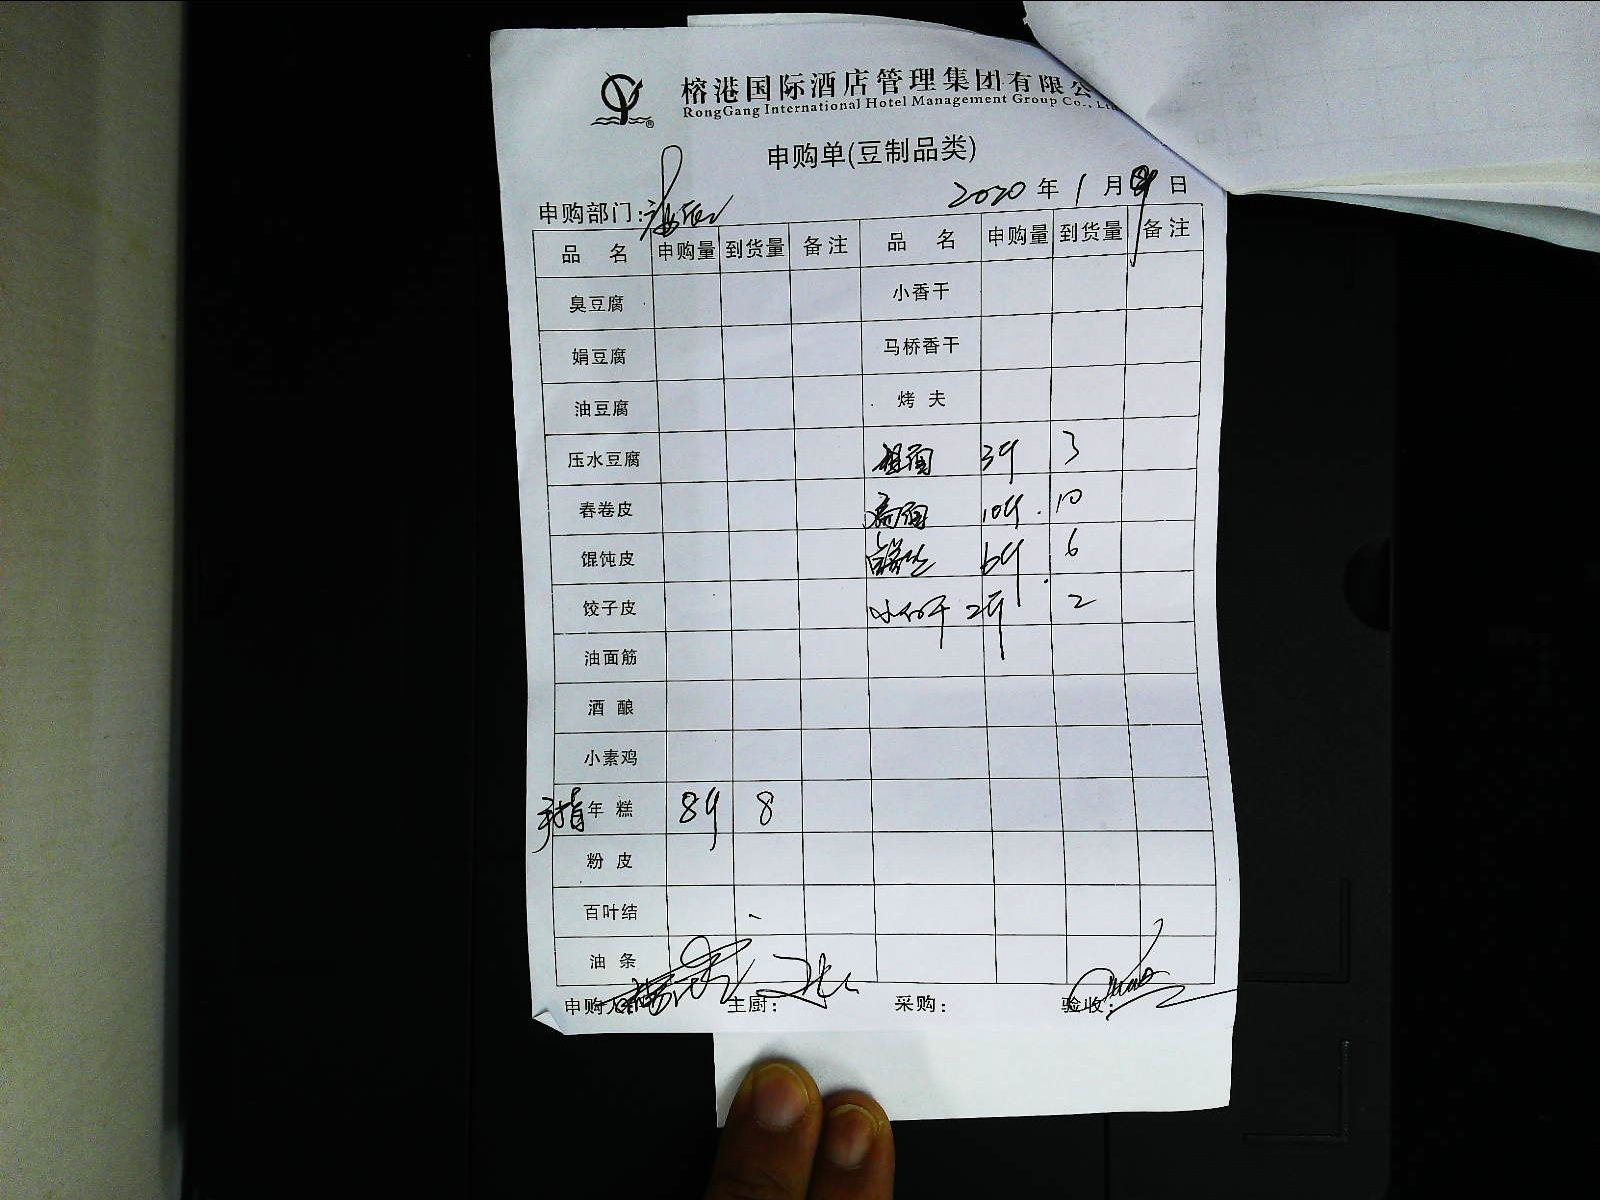 榕港国际酒店管理集团有限公
RongGang International Hotel Management Group Co., Lt
申购单(豆制品类)
申购部门:
2020 年 1 月 日
品 名 申购量 到货量 备注 品 名 申购量 到货量 备注
臭豆腐 小香干
娟豆腐 马桥香干
油豆腐 烤 夫
压水豆腐 3斤 3
春卷皮 10斤 10
馄饨皮 6斤 6
饺子皮 2斤 2
油面筋
酒 酿
小素鸡
手指年糕 8斤 8
粉 皮
百叶结
油 条
申购人 主厨: 采购: 验收: